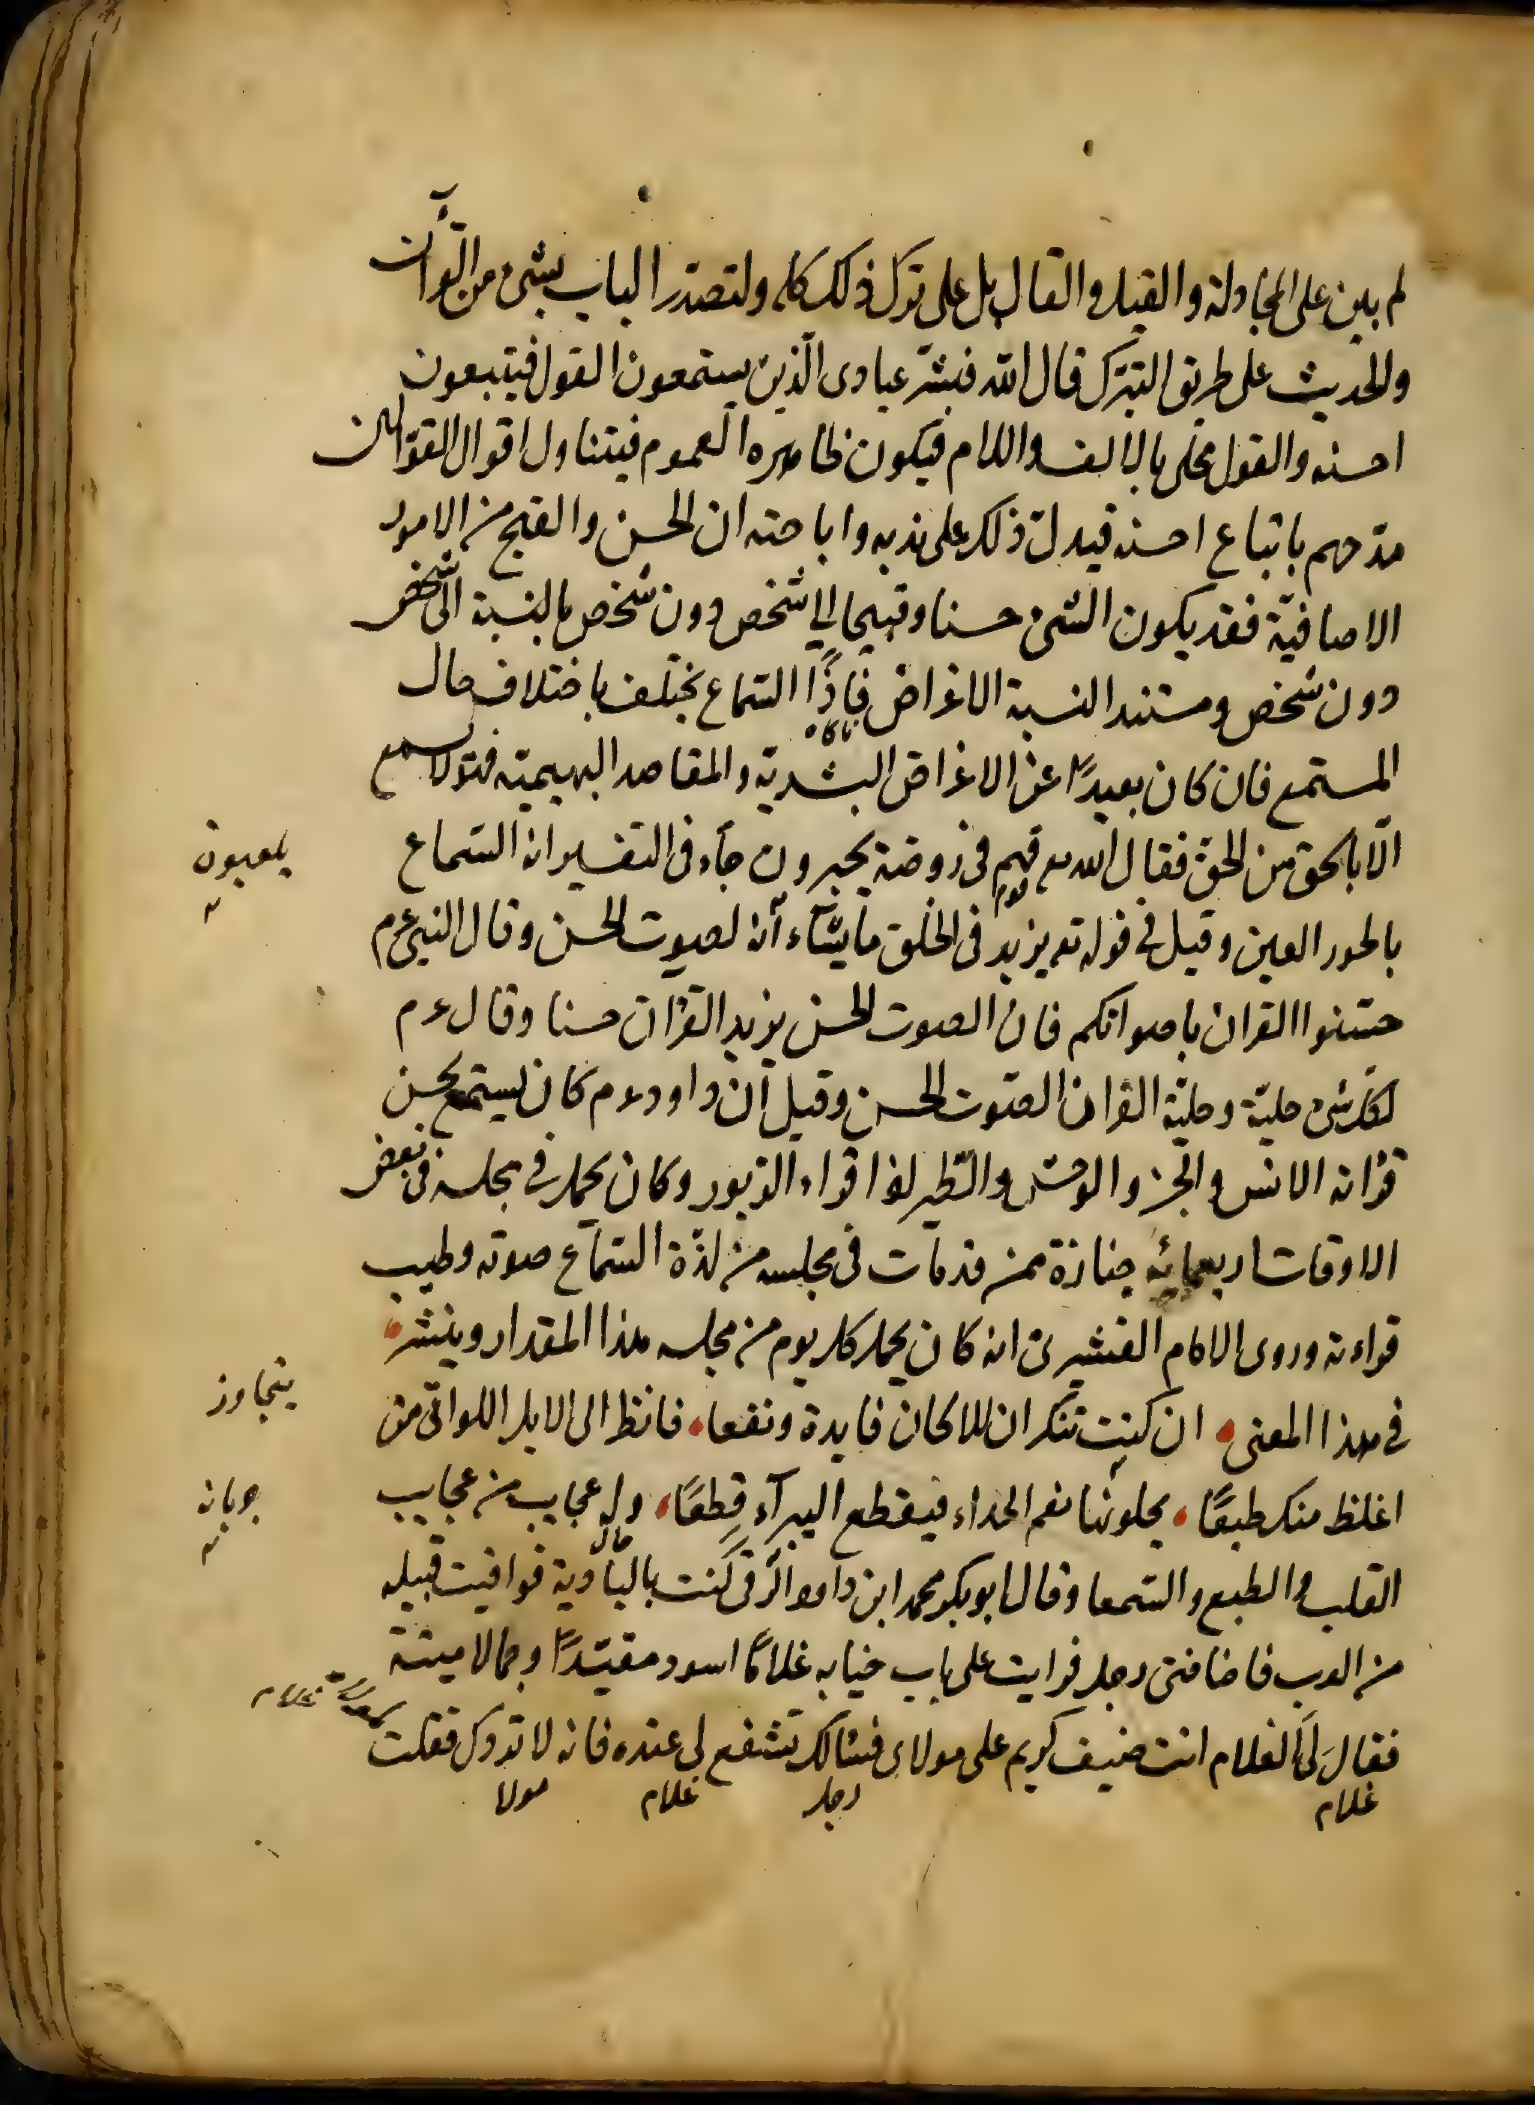 لم يبن على المجادلة والقيل والقال بل على ترك ذلك كله ولنصدر الباب بشئ من القرآن
والحديث على طريق التبرك قال الله فبشر عبادى الّذين يستمعون القول فيتبعون
احسنه والقول محلى بالالف واللام فيكون ظاهره العموم فيتناول اقوال القوّالين
مدحهم باتباع احسنه فيدل ذلك على ندبه واباحته ان الحسن والقبح من الامور
الاضافيّة فقد يكون الشئ حسنا وقبيحا الى شخص دون شخص بالنسبة الى شخص
دون شخص ومستند النسبة الاغراض فاذًا السّماع يختلف باختلاف حال
المستمع فان كان بعيدًا عن الاغراض البشريّة والمقاصد البهيميّه فهو لا يسمع
الّا بالحق من الحق فقال الله تع فهم فى روضة يحبرون جآء فى التفسير انه السّماع
بالحور العين وقيل فى قوله تع يزيد فى الخلق ما يشآء انه الصوت الحسن وقال النبى ع م
حسّنوا القران باصواتكم فان الصوت الحسن يزيد القرآن حسنا وقال ع م
لكل شئ حلية وحلية القران الصّوت الحسن وقيل ان داود ع م كان يستمع لحسن
قرانه الانس والجن والوحش والطّير لذا قراء الزبور وكان يحمل فى مجلسه فى بعض
الاوقات اربعمائه جنازة ممن قد مات فى مجلسه من لذّة السّماع صوته وطيب
قراءته وروى الامام القشيرى انه كان يحمل كل يوم من مجلسه هذا المقدار وينشر
فى هذا المعنى ان كنت تنكر ان للالحان فايدة ونفعا فانظر الى الابل اللواتى من
اغلظ منك طبعًا يحلونها نغم الحداء فيقطع البرآء قطعًا وله عجايب من عجايب
القلب والطبع والسّمعا وقال ابو بكر محمد ابن داود الرّقى كنت بالبادية فوافيت قبيله
من العرب فاضافنى رجل فرايت على باب خبابه غلامًا اسود مقيّدًا وجمالا ميتة
فقال لى الغلام انت ضيف كريم على مولاى فتشفع لى عنده فانه لا تردك فقلت
غلام رجل غلام مولا
يلعبون
يتجاوز